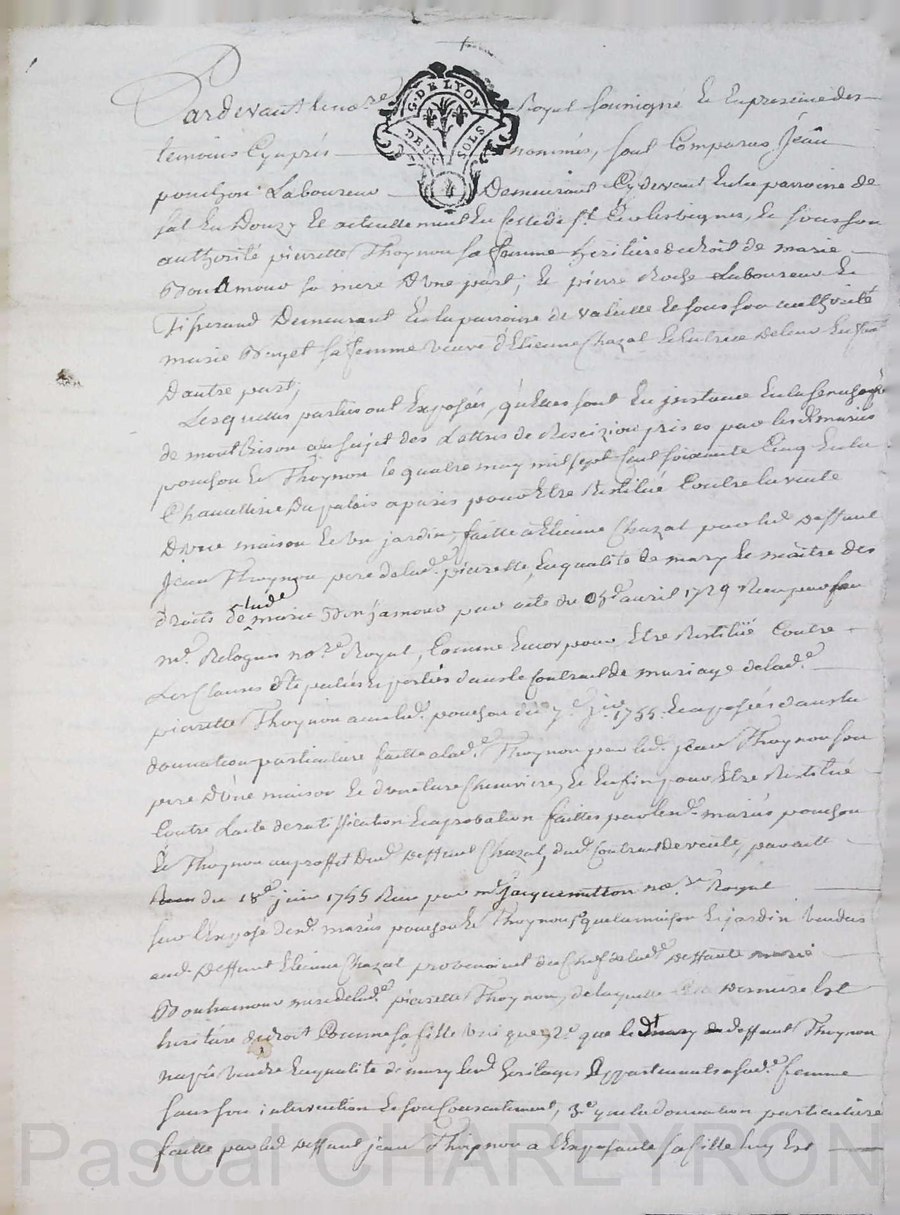 G. DE LYON
DEUX SOLS
4
Pardevant le no.re Royal soussigné Et En presence des
temoins Cy apres nommés, sont Comparus Jean
ponchon Laboureur Demeurant Cy devant En la parroisse de
sal En Donzy Et actuellement En Celle de st. les vignes, Et sous son
authorité pierrette Thoynon sa femme heritiere de droit de marie
Bonnamour sa mere D'une part; Et pierre Roche Laboureur Et
Tisserand Demeurant En la parroisse de valeille Et sous son authorité
marie Buyet sa femme veuve d'Etienne Chazal Et tutrice de leur
D'autre part;
Lesquelles parties ont Exposées, qu'elles sont En instance En la senechaussée
de montbrison au sujet des Lettres de Rescizion prises par les mariés
ponchon Et Thoynon le quatre may mil sept Cent soixante Cinq En la
Chancellerie Du palais a paris pour Etre Restitué Contre la vente
D'une maison Et un jardin, faitte a Etienne Chazal par led. Deffunt
jean Thoynon pere de lad.e pierrette, En qualité de mary Et maitre des
droits de lad.e marie Bonjamour par acte du avril 1729 Receu par
me. Relogue no.re Royal, Comme Encor pour Etre Restitué Contre
Les Clauses stipulées Et portées dans le Contrat de mariage de lad.e
pierrette Thoynon avec led. ponchon du 7.e 1755. Et aposées dans la
donnation particuliere faitte a lad.e Thoynon par led. jean Thoynon son
pere D'une maison Et d'une terre Cheneviere, Et Enfin pour Etre Restitué
Contre L'acte de ratiffication Et aprobation faittes par lesd. mariés ponchon
Et Thoynon au proffit dud. Deffunt Chazal, dud. Contrat de vente, par acte
du 18.e juin 1755 Receu par me. Jacquemetton no.re Royal
sur L'Exposé desd. mariés ponchon Et Thoynon 1.o que la maison Et jardin vendus
aud. Deffunt Etienne Chazal provenoient du Chef de lad.e Deffunte marie
Bonnamour mere de lad.e pierrette Thoynon, de laquelle Derniere Est
heritiere de droit Comme sa fille unique, 2.o que led. Deffunt Thoynon
n'a pû vendre En qualité de mary lesd. heritages appartenants a sad.e femme
sans son intervention Et son Consentement, 3.o que la donnation particuliere
faitte par led. Deffunt jean Thoynon a L'Exposante sa fille luy Est
Pascal CHAREYRON